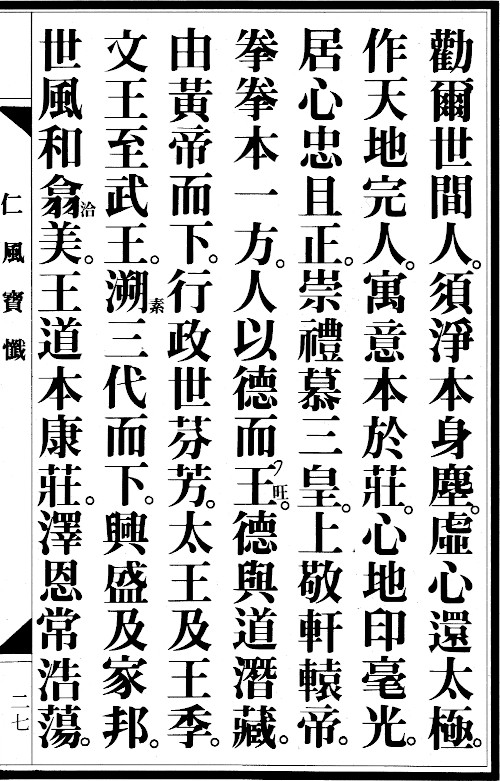 勸爾世間人。須淨本身塵。虛心還太極。
作天地完人。寓意本於莊。心地印毫光。
居心忠且正。崇禮慕三皇。上敬軒轅帝。
拳拳本一方。人以德而王旺。德與道潛藏。
由黃帝而下。行政世芬芳。太王及王季。
文王至武王。溯素三代而下。興盛及家邦。
世風和翕洽美。王道本康莊。澤恩常浩蕩。
仁風寶懺
二七